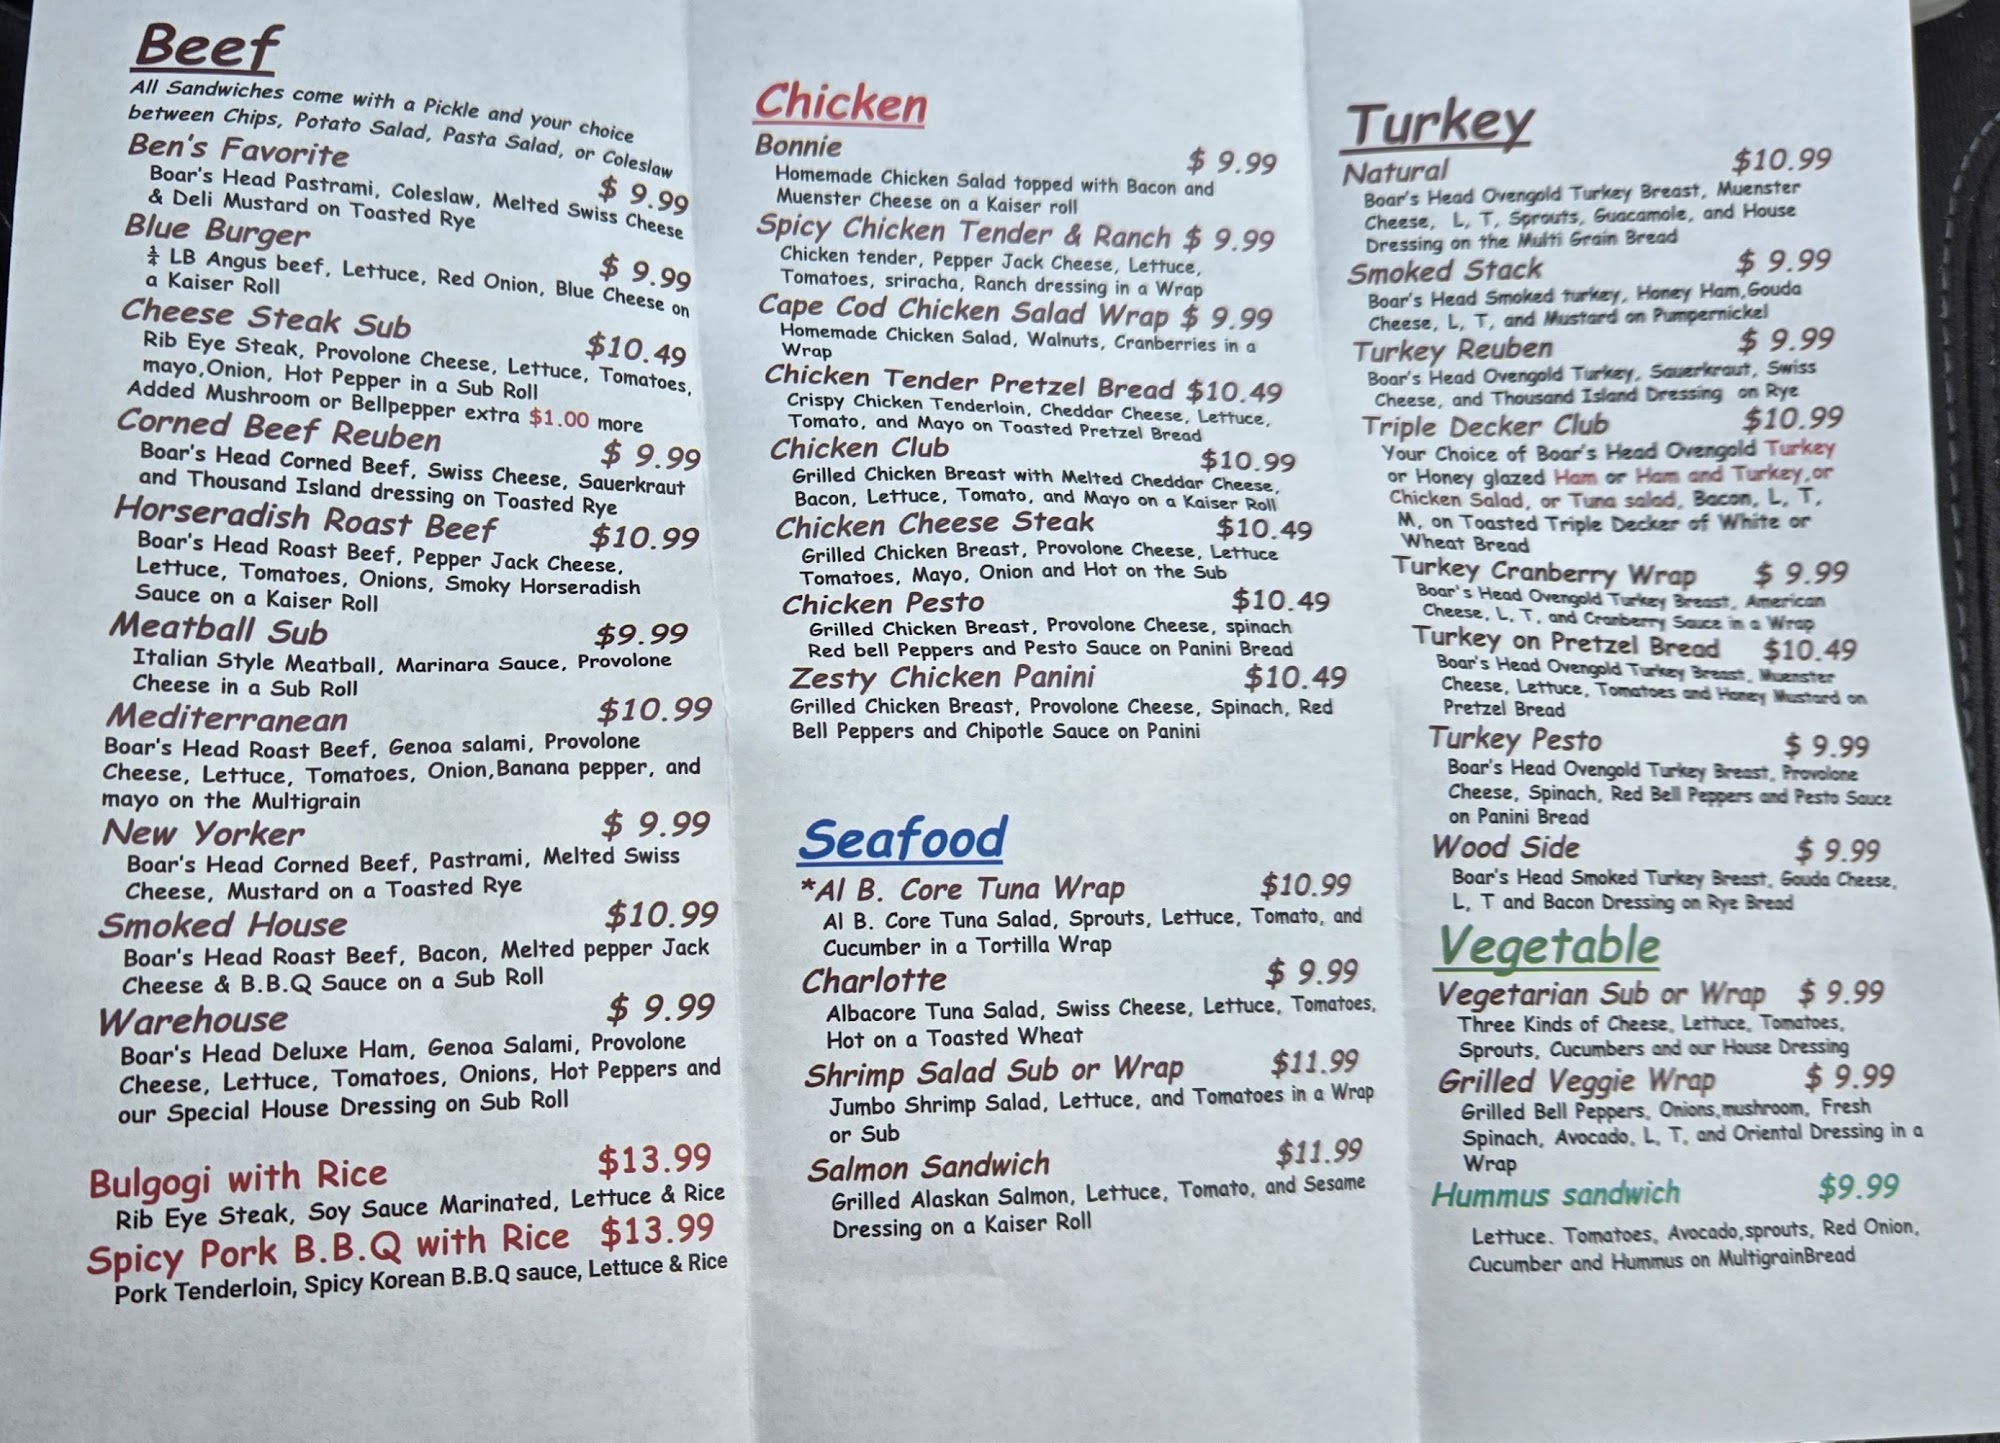 Beef
All Sandwiches come with a Pickle and your choice
between Chips, Potato Salad, Pasta Salad, or Coleslaw
Ben's Favorite $ 9.99
Boar's Head Pastrami, Coleslaw, Melted Swiss Cheese
& Deli Mustard on Toasted Rye
Blue Burger $ 9.99
¾ LB Angus beef, Lettuce, Red Onion, Blue Cheese on
a Kaiser Roll
Cheese Steak Sub $10.49
Rib Eye Steak, Provolone Cheese, Lettuce, Tomatoes,
mayo,Onion, Hot Pepper in a Sub Roll
Added Mushroom or Bellpepper extra $1.00 more
Corned Beef Reuben $ 9.99
Boar's Head Corned Beef, Swiss Cheese, Sauerkraut
and Thousand Island dressing on Toasted Rye
Horseradish Roast Beef $10.99
Boar's Head Roast Beef, Pepper Jack Cheese,
Lettuce, Tomatoes, Onions, Smoky Horseradish
Sauce on a Kaiser Roll
Meatball Sub $9.99
Italian Style Meatball, Marinara Sauce, Provolone
Cheese in a Sub Roll
Mediterranean $10.99
Boar's Head Roast Beef, Genoa salami, Provolone
Cheese, Lettuce, Tomatoes, Onion,Banana pepper, and
mayo on the Multigrain
New Yorker $ 9.99
Boar's Head Corned Beef, Pastrami, Melted Swiss
Cheese, Mustard on a Toasted Rye
Smoked House $10.99
Boar's Head Roast Beef, Bacon, Melted pepper Jack
Cheese & B.B.Q Sauce on a Sub Roll
Warehouse $ 9.99
Boar's Head Deluxe Ham, Genoa Salami, Provolone
Cheese, Lettuce, Tomatoes, Onions, Hot Peppers and
our Special House Dressing on Sub Roll
Bulgogi with Rice $13.99
Rib Eye Steak, Soy Sauce Marinated, Lettuce & Rice
Spicy Pork B.B.Q with Rice $13.99
Pork Tenderloin, Spicy Korean B.B.Q sauce, Lettuce & Rice
Chicken
Bonnie $ 9.99
Homemade Chicken Salad topped with Bacon and
Muenster Cheese on a Kaiser roll
Spicy Chicken Tender & Ranch $ 9.99
Chicken tender, Pepper Jack Cheese, Lettuce,
Tomatoes, sriracha, Ranch dressing in a Wrap
Cape Cod Chicken Salad Wrap $ 9.99
Homemade Chicken Salad, Walnuts, Cranberries in a
Wrap
Chicken Tender Pretzel Bread $10.49
Crispy Chicken Tenderloin, Cheddar Cheese, Lettuce,
Tomato, and Mayo on Toasted Pretzel Bread
Chicken Club $10.99
Grilled Chicken Breast with Melted Cheddar Cheese,
Bacon, Lettuce, Tomato, and Mayo on a Kaiser Roll
Chicken Cheese Steak $10.49
Grilled Chicken Breast, Provolone Cheese, Lettuce
Tomatoes, Mayo, Onion and Hot on the Sub
Chicken Pesto $10.49
Grilled Chicken Breast, Provolone Cheese, spinach
Red bell Peppers and Pesto Sauce on Panini Bread
Zesty Chicken Panini $10.49
Grilled Chicken Breast, Provolone Cheese, Spinach, Red
Bell Peppers and Chipotle Sauce on Panini
Seafood
*Al B. Core Tuna Wrap $10.99
Al B. Core Tuna Salad, Sprouts, Lettuce, Tomato, and
Cucumber in a Tortilla Wrap
Charlotte $ 9.99
Albacore Tuna Salad, Swiss Cheese, Lettuce, Tomatoes,
Hot on a Toasted Wheat
Shrimp Salad Sub or Wrap $11.99
Jumbo Shrimp Salad, Lettuce, and Tomatoes in a Wrap
or Sub
Salmon Sandwich $11.99
Grilled Alaskan Salmon, Lettuce, Tomato, and Sesame
Dressing on a Kaiser Roll
Turkey
Natural $10.99
Boar's Head Ovengold Turkey Breast, Muenster
Cheese, L, T, Sprouts, Guacamole, and House
Dressing on the Multi Grain Bread
Smoked Stack $ 9.99
Boar's Head Smoked turkey, Honey Ham,Gouda
Cheese, L, T, and Mustard on Pumpernickel
Turkey Reuben $ 9.99
Boar's Head Ovengold Turkey, Sauerkraut, Swiss
Cheese, and Thousand Island Dressing on Rye
Triple Decker Club $10.99
Your Choice of Boar's Head Ovengold Turkey
or Honey glazed Ham or Ham and Turkey,or
Chicken Salad, or Tuna salad, Bacon, L, T,
M, on Toasted Triple Decker of White or
Wheat Bread
Turkey Cranberry Wrap $ 9.99
Boar's Head Ovengold Turkey Breast, American
Cheese, L, T, and Cranberry Sauce in a Wrap
Turkey on Pretzel Bread $10.49
Boar's Head Ovengold Turkey Breast, Muenster
Cheese, Lettuce, Tomatoes and Honey Mustard on
Pretzel Bread
Turkey Pesto $ 9.99
Boar's Head Ovengold Turkey Breast, Provolone
Cheese, Spinach, Red Bell Peppers and Pesto Sauce
on Panini Bread
Wood Side $ 9.99
Boar's Head Smoked Turkey Breast, Gouda Cheese,
L, T and Bacon Dressing on Rye Bread
Vegetable
Vegetarian Sub or Wrap $ 9.99
Three Kinds of Cheese, Lettuce, Tomatoes,
Sprouts, Cucumbers and our House Dressing
Grilled Veggie Wrap $ 9.99
Grilled Bell Peppers, Onions,mushroom, Fresh
Spinach, Avocado, L, T, and Oriental Dressing in a
Wrap
Hummus sandwich $9.99
Lettuce. Tomatoes, Avocado,sprouts, Red Onion,
Cucumber and Hummus on MultigrainBread